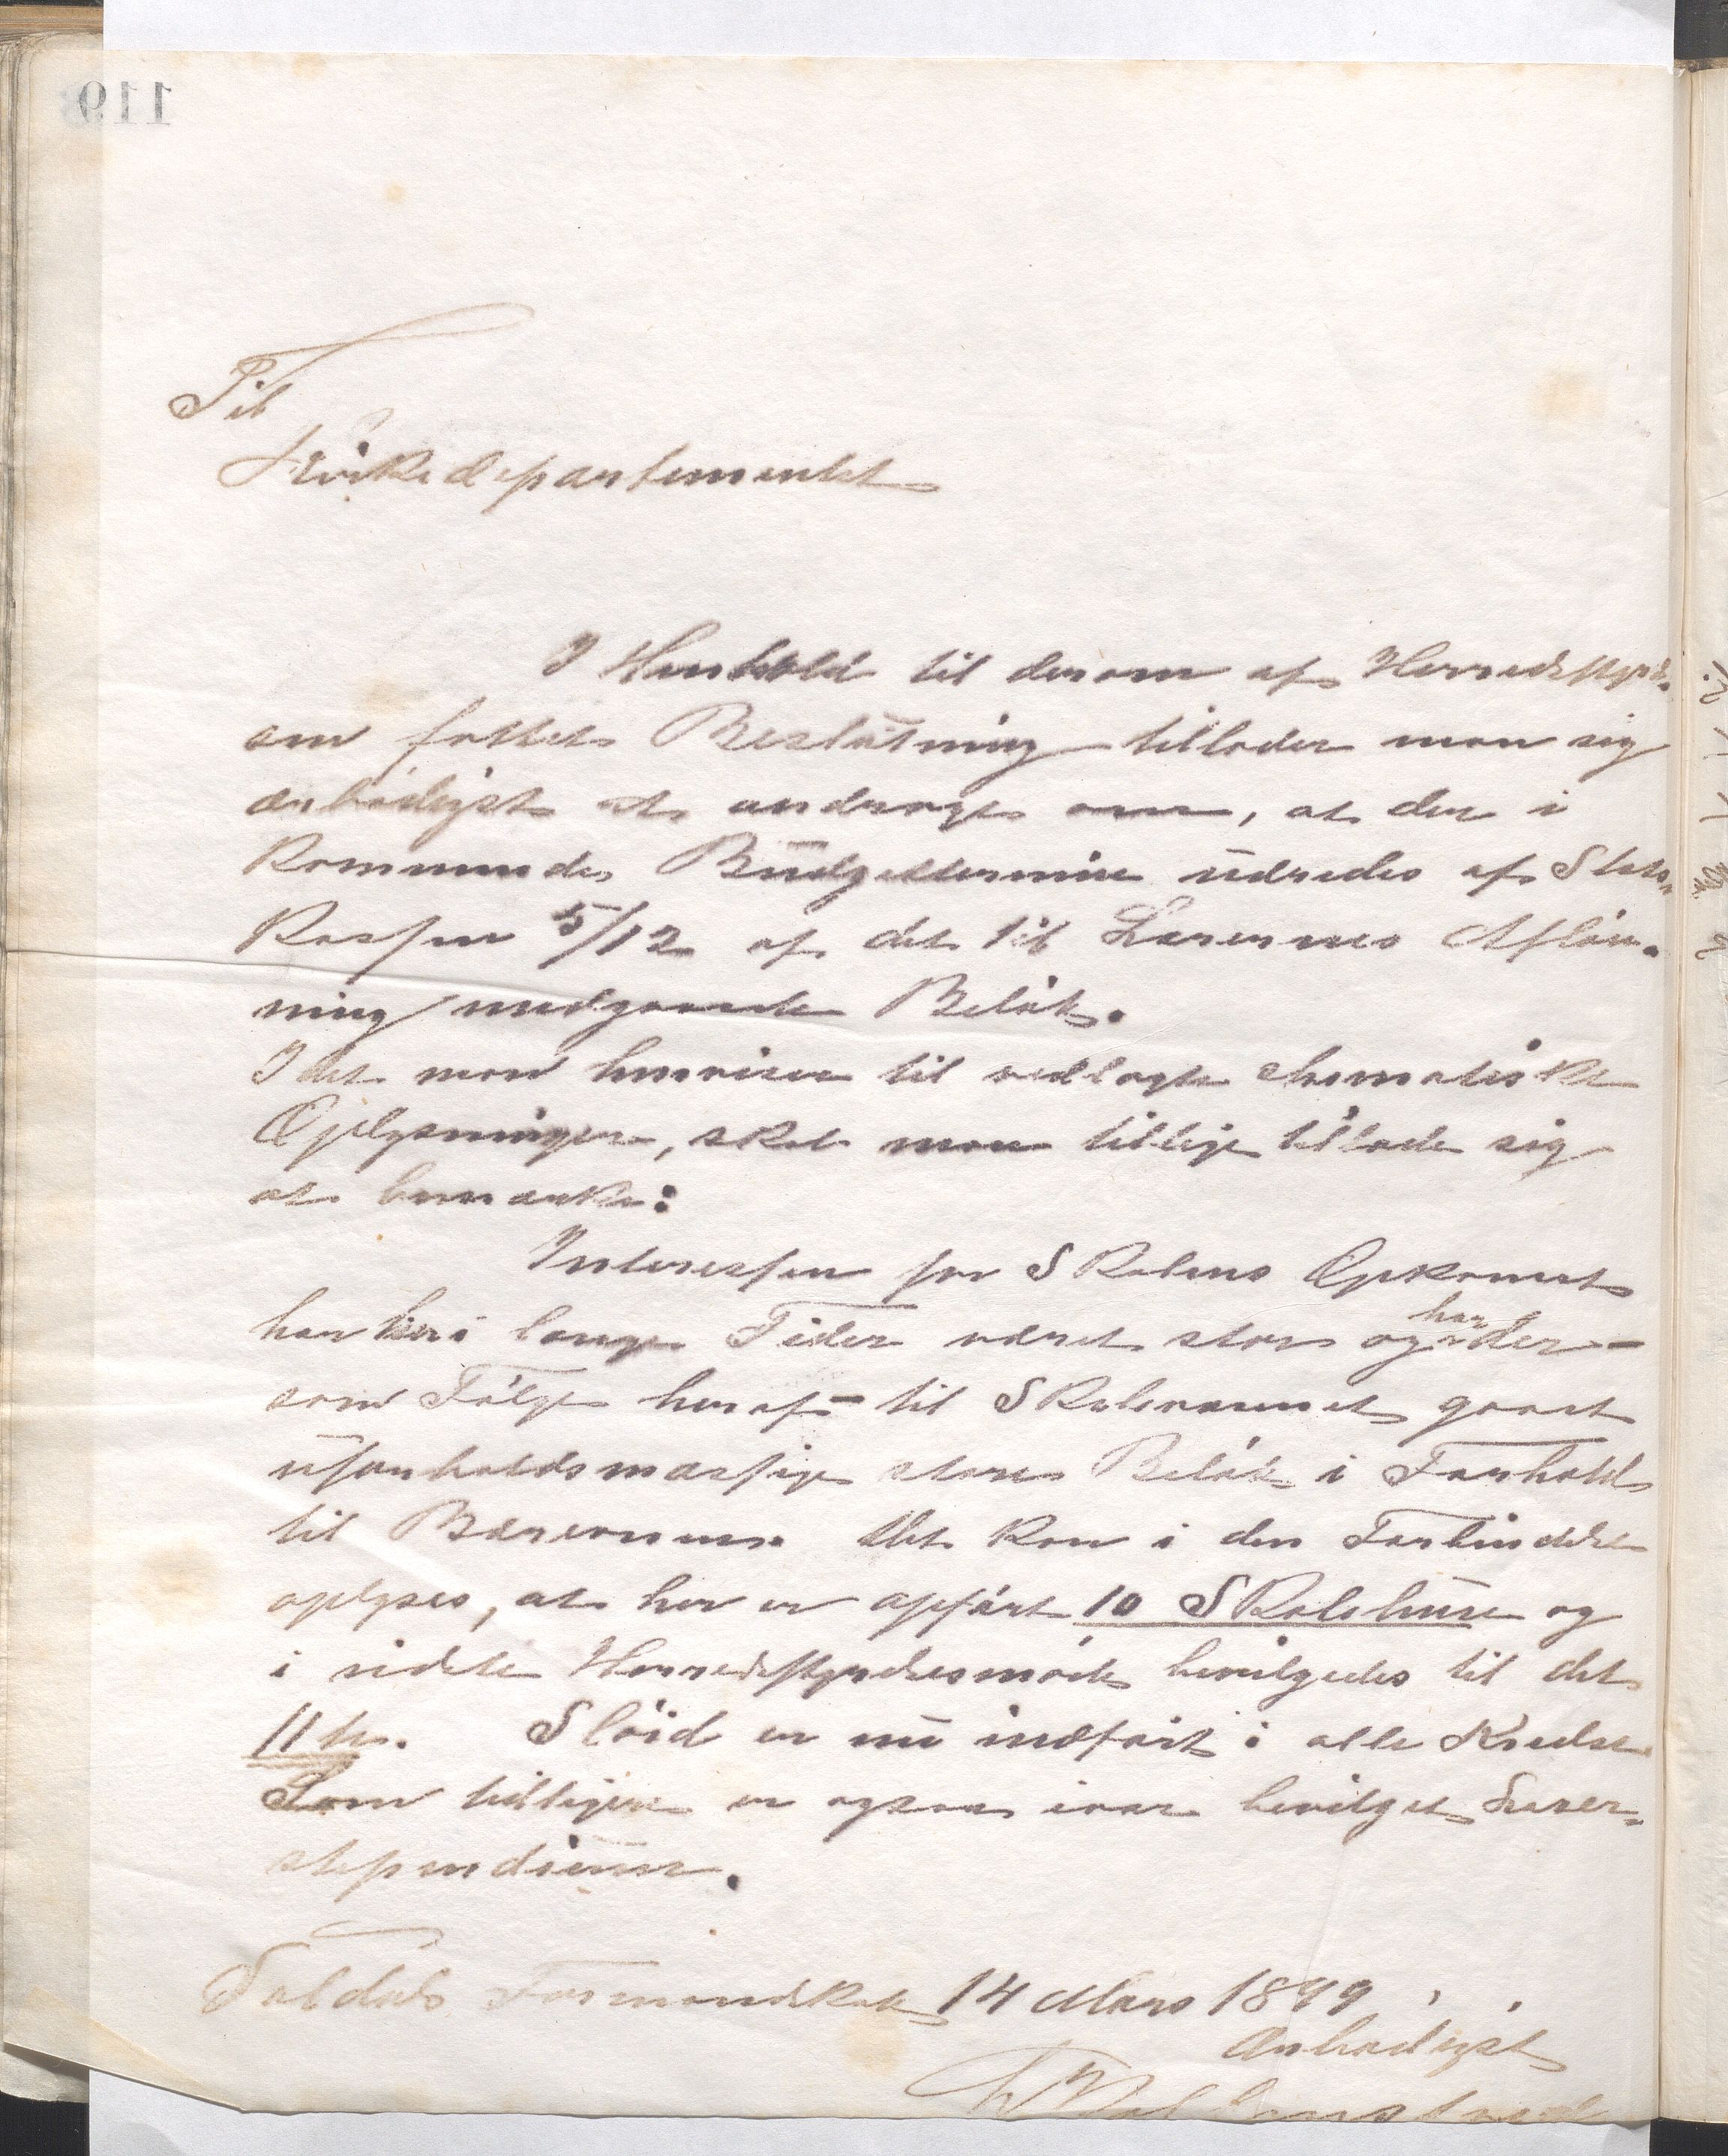 119
Til
Kirkedepartementet
I Henhold til derom af Herredsstyrel-
sen fattet Beslutning tillader man sig
ærbødigst at andrage om, at der i
kommende Budgettermin udredes af Stats-
kassen 5/12 af det til Lærernes Afløn-
ning medgaaede Beløb.
Idet man henviser til vedlagte schematiske
Oplysninger, skal man tillige tillade sig
at bemærke:
Interessen for Skolens Opkomst
har her i lange Tider været stor og har der -
som Følge heraf - til Skolevæsenet gaaet
uforholdsmæssige store Beløb i Forhold
til Bæreevnen. Det kan i den Forbindelse
oplyses, at her er opført 10 Skolehuse og
i sidste Herredsstyrelsesmøde bevilgedes til det
11te. Sløid er nu indført i alle Kredse.
Som tidligere er ogsaa iaar bevilget Lærer-
stipendium.
Saldals Formandskab 14 Mars 1899
Ærbødigst